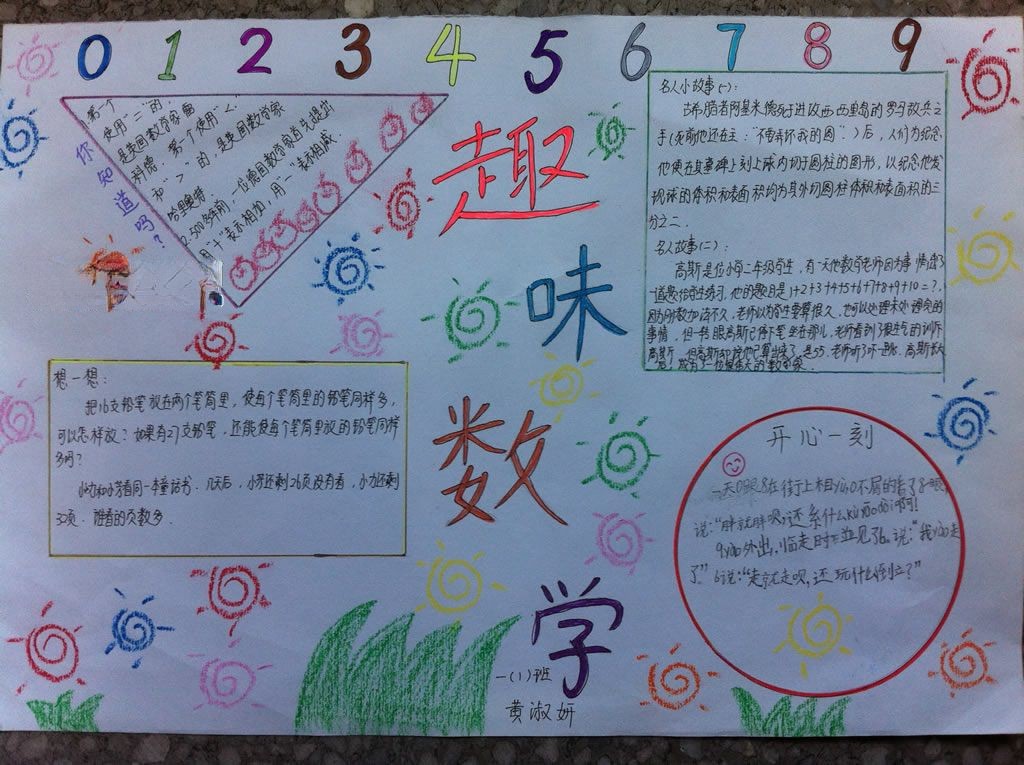 0 1 2 3 4 5 6 7 8 9
趣味数学
一(1)班
黄淑妍
你知道吗?
第一个
使用"="的,
是英国数学家雷
科德。第一个使用"<"
和">"的,是英国数学家
哈里奥特
2.500多年前,一位德国数学家首先提出
用"+"表示相加,用"一"表示相减.
名人小故事(一):
古希腊者阿基米德死于进攻西西里岛的罗马敌兵之
手(死前他还在主:"不要弄坏我的圆")后,人们为纪念
他便在其墓碑上刻上球内切于圆柱的图形,以纪念他发
现球的体积和表面积均为其外切圆柱体积和表面积的三
分之二.
名人故事(二):
高斯是位小学二年级学生,有一天他数学老师因为事情
一道题给学生练习.他的题目是1+2+3+4+5+6+7+8+9+10=?,
因为加法不久,老师以为学生要算很久,也可以处理未处理完的
事情,但一转眼高斯已停下笔坐在那儿,老师看到了很生气的训斥
高斯,但高斯却说他已算出来了,是55,老师听了吓一跳,高斯长大
后,成为了一位很伟大的数学家.
想一想:
把16支铅笔放在两个笔筒里,使每个笔筒里的铅笔同样多,
可以怎样放?如果有27支铅笔,还能使每个笔筒里放的铅笔同样
多吗?
小力和小芳看同一本童话书.几天后,小芳还剩26页没有看,小力还剩
30页.谁看的页数多.
开心一刻
一天0跟8在街上相yù0不屑的看了8一眼,
说:"胖就胖呗,还系什么kù yāo dài啊!
9yāo外出,临走时
说:"我yāo走
了."6说:"走就走呗,还玩什么倒立?"